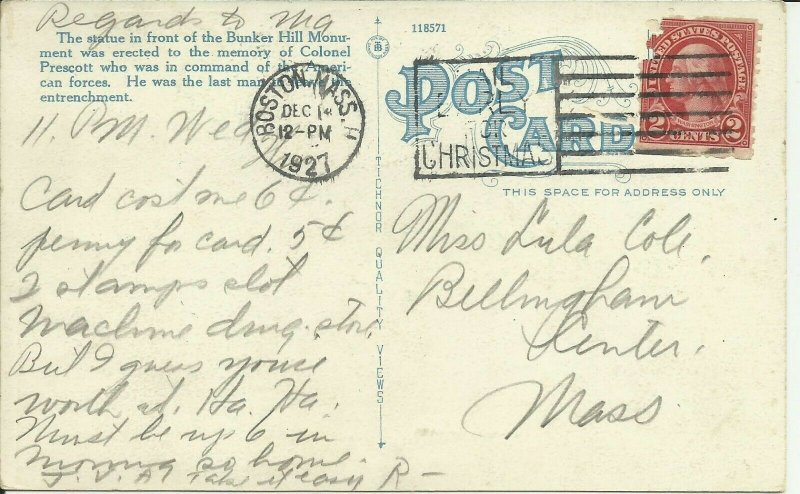 Regards to Ma
The statue in front of the Bunker Hill Monu-
ment was erected to the memory of Colonel
Prescott who was in command of the Ameri-
can forces. He was the last man the
entrenchment.
11. P.M. Wed
Card cost me 6¢.
penny for card. 5¢
2 stamps slot
machine drug. store.
But I guess youse
worth it. Ha. Ha.
Must be up 6 in
morning so home.
take it easy R-
118571
POST
CARD
BOSTON, MASS.
DEC 14
12-PM
1927
MAIL
CHRISTMAS
UNITED STATES POSTAGE
2 CENTS 2
THIS SPACE FOR ADDRESS ONLY
TICHNOR QUALITY VIEWS
Miss Lula Cole.
Bellingham
Center.
Mass